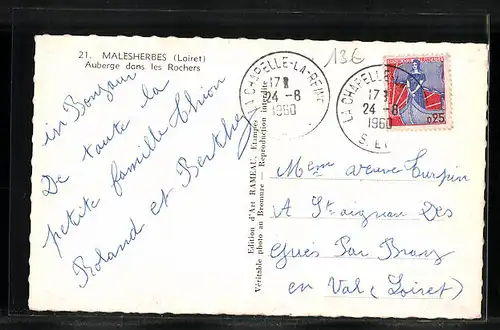 21. MALESHERBES (Loiret)
Auberge dans les Rochers
un Bonjour
De toute la
petite famille
Roland et Berthe
Edition d'Art RAMEAU, Etampes
Véritable photo au Bromure - Reproduction interdite
LA CHAPELLE-LA-REINE
17H
24 -8
1960
13€
LA CHAPELLE
17H
24 -8
1960
0,25
Mem veuve Turpin
A St aignan Des
Gués Par Bray
en Val (Loiret)